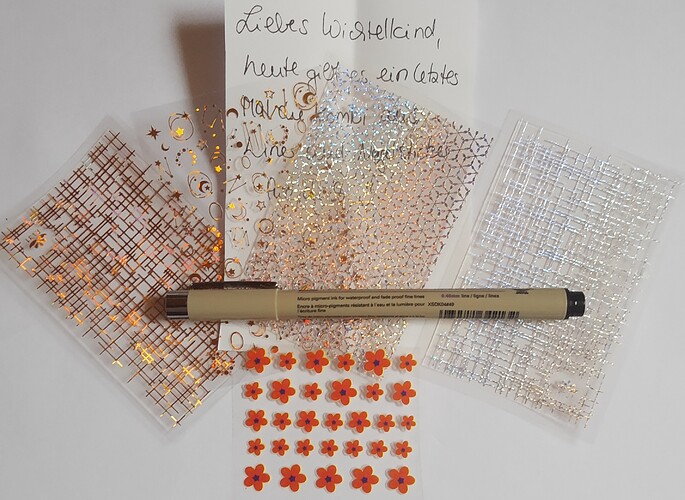 Liebes Wichtelkind,
heute gibt es ein letztes
Mal die Kombi aus
Liner und
Micro pigment ink for waterproof and fade proof fine lines
Encre à micro-pigments résistant à l'eau et à la lumière pour
l'écriture fine
0.45mm line / ligne / lines
XSDK04#49